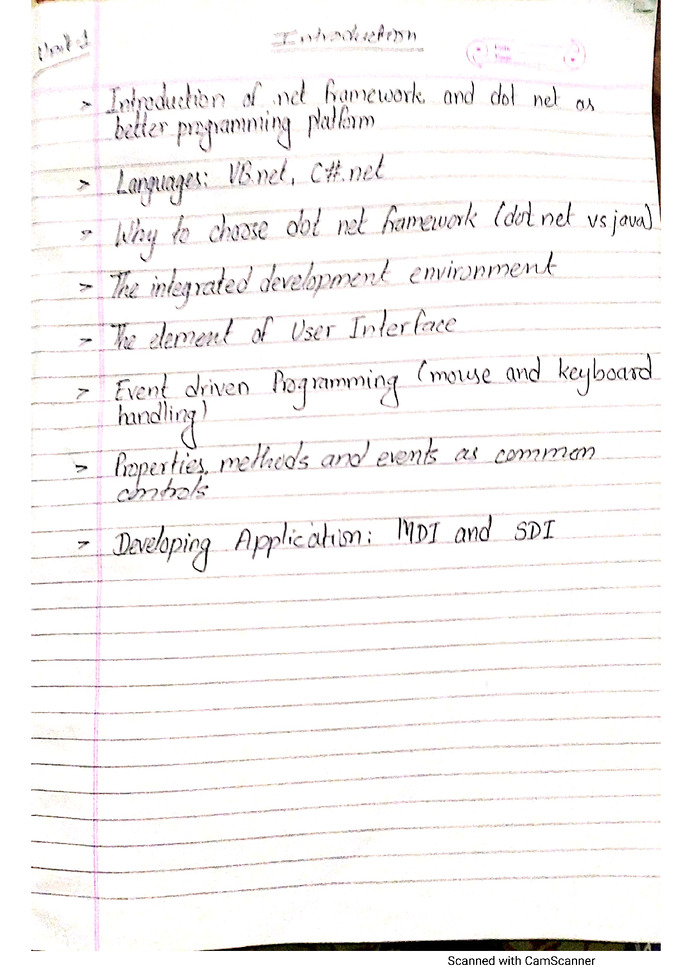 Unit-1
Introduction
> Introduction of .net framework and dot net as
better programming platform
> Languages: VB.net, C#.net
> Why to choose dot net framework (dot net vs java)
> The integrated development environment
> The element of User Interface
> Event driven Programming (mouse and keyboard
handling)
> Properties, methods and events as common
controls
> Developing Application: MDI and SDI
Scanned with CamScanner